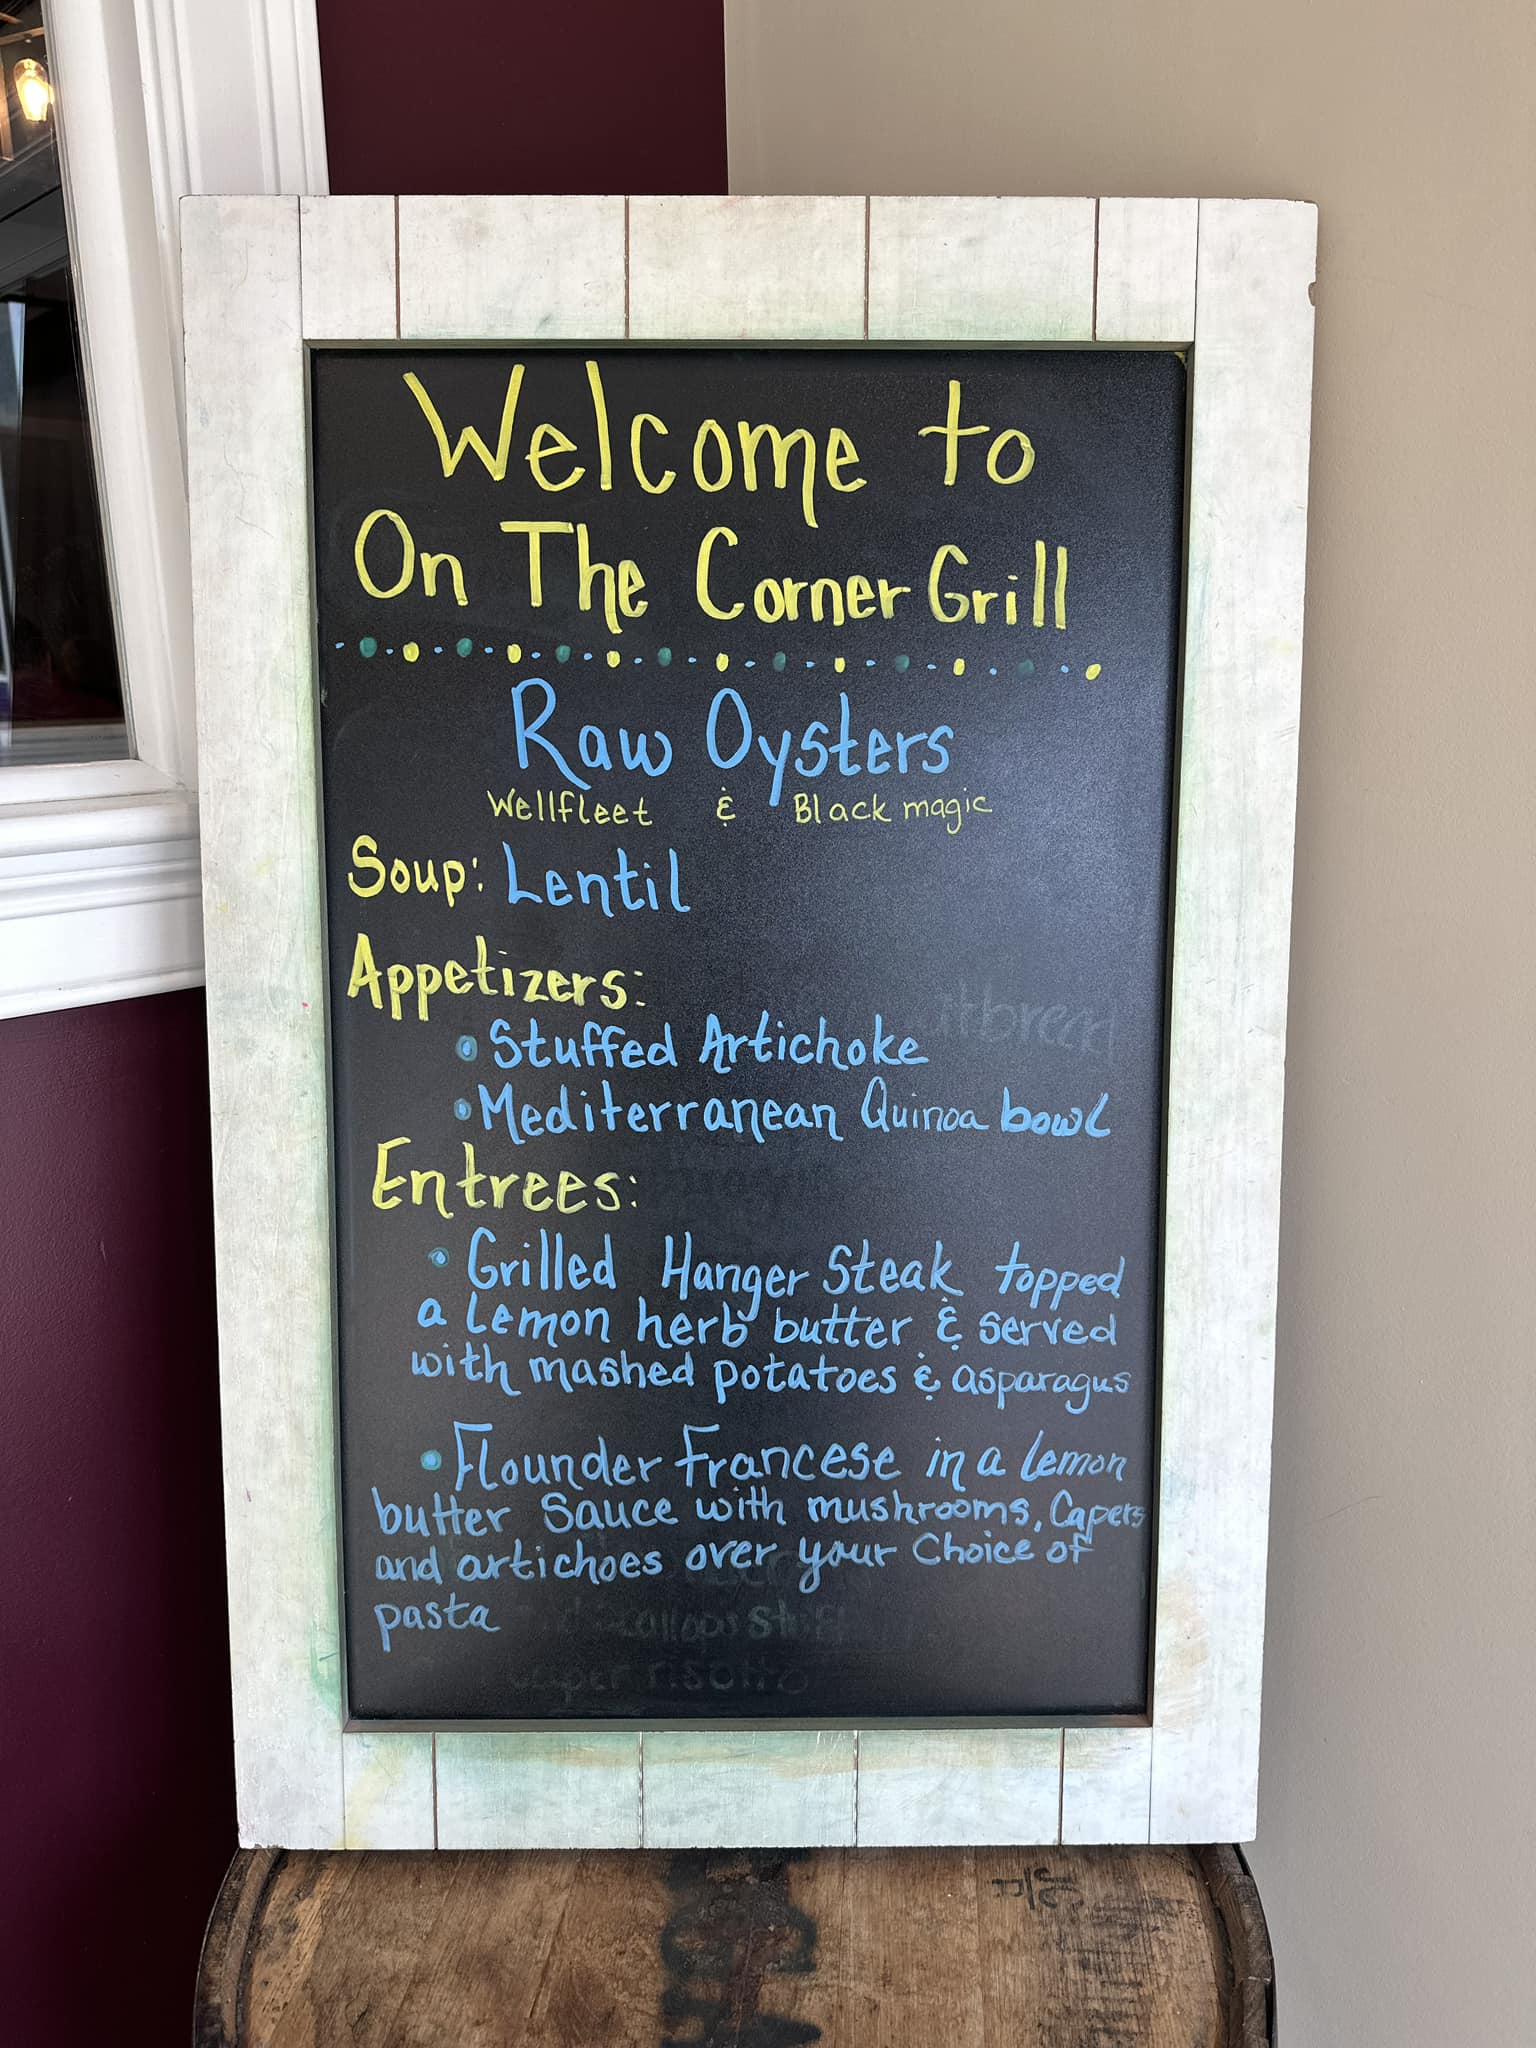 Welcome to
On The Corner Grill
Raw Oysters
Wellfleet & Black magic
Soup: Lentil
Appetizers:
• Stuffed Artichoke
• Mediterranean Quinoa bowl
Entrees:
• Grilled Hanger Steak topped
a lemon herb butter & served
with mashed potatoes & asparagus
• Flounder Francese in a lemon
butter Sauce with mushrooms, Capers
and artichoes over your Choice of
pasta
risotto